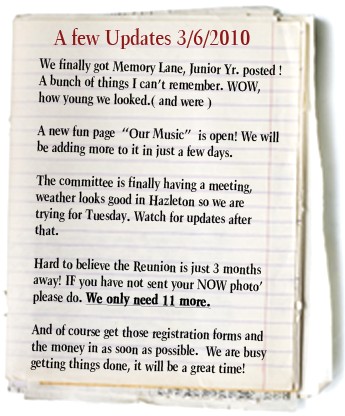 A few Updates 3/6/2010
We finally got Memory Lane, Junior Yr. posted !
A bunch of things I can't remember. WOW,
how young we looked.( and were )
A new fun page "Our Music" is open! We will
be adding more to it in just a few days.
The committee is finally having a meeting,
weather looks good in Hazleton so we are
trying for Tuesday. Watch for updates after
that.
Hard to believe the Reunion is just 3 months
away! IF you have not sent your NOW photo'
please do. We only need 11 more.
And of course get those registration forms and
the money in as soon as possible. We are busy
getting things done, it will be a great time!